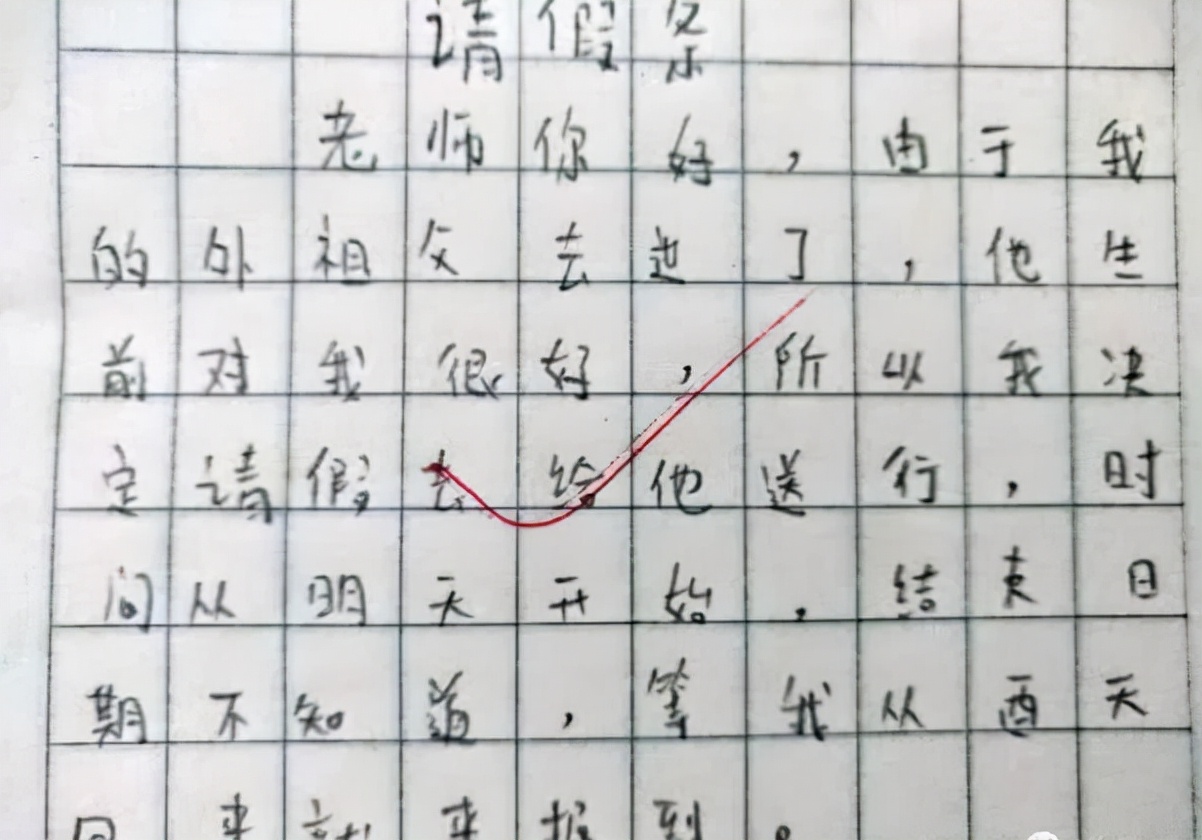 请假条
老师你好，由于我
的外祖父去世了，他生
前对我很好，所以我决
定请假去给他送行，时
间从明天开始，结束日
期不知道，等我从西天
回来就来报到。